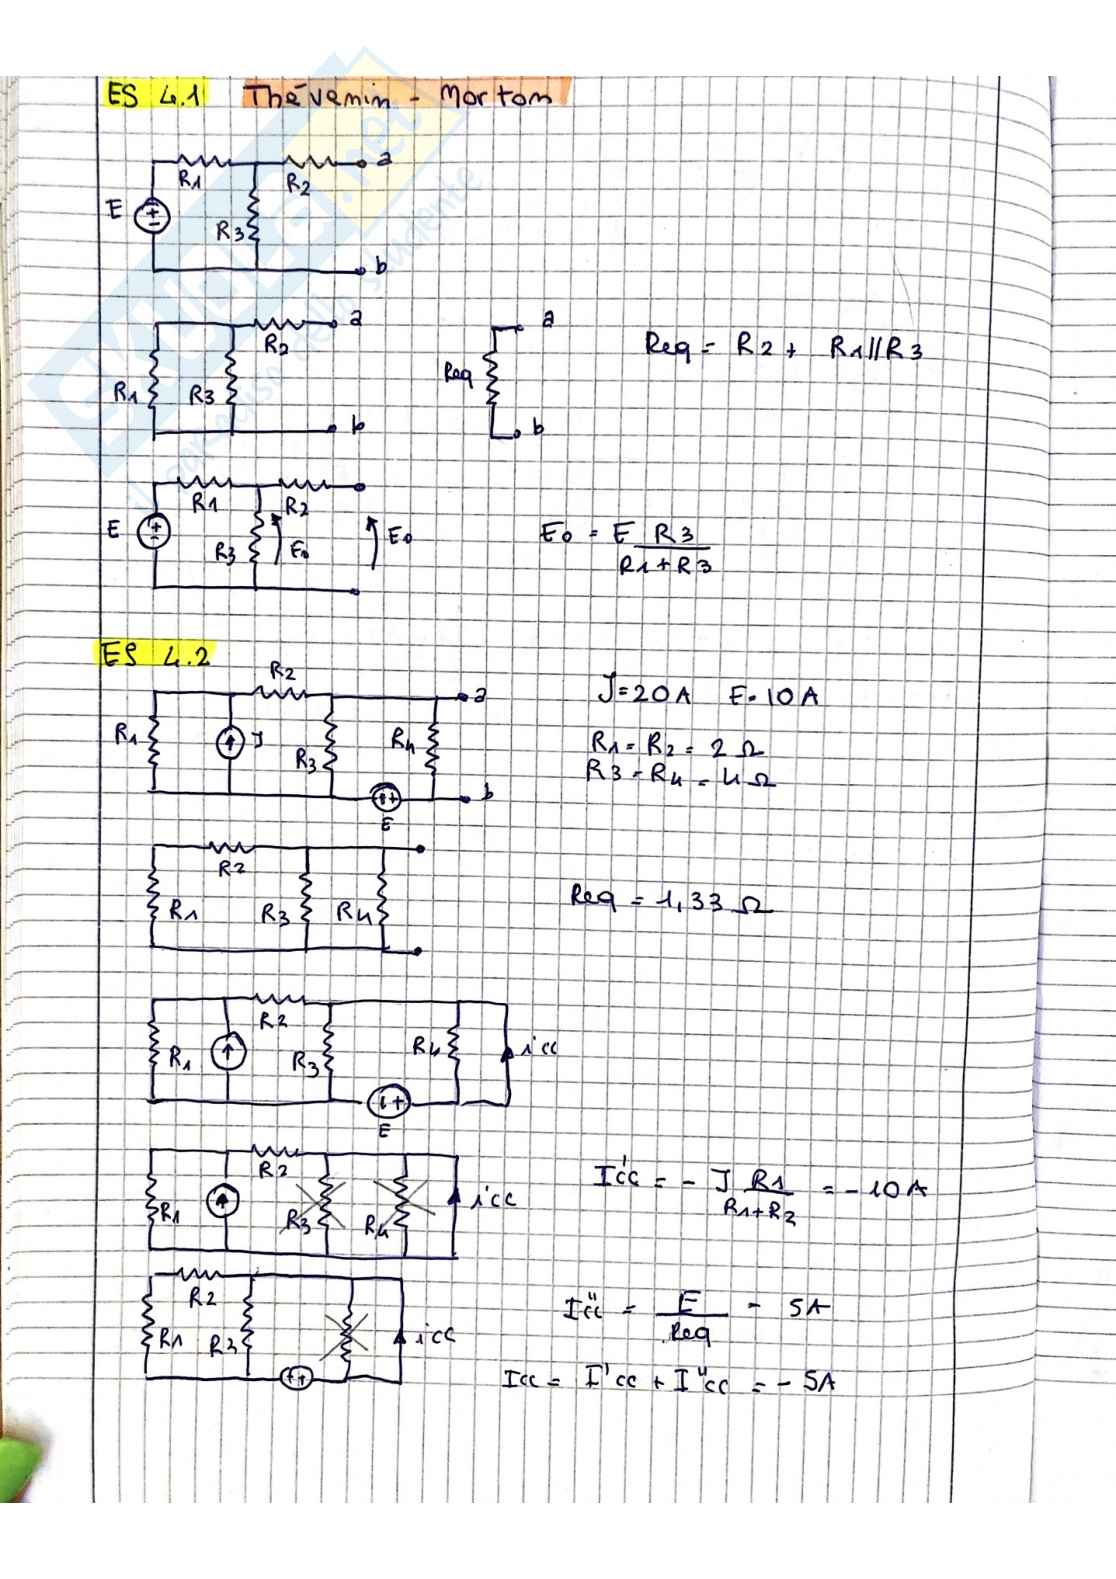 ES 4.1 Thévenin - Norton
R1 R2 a
E R3
b
R2 a a
R1 R3 Req Req = R2 + R1//R3
b b
R1 R2
E R3 E0 E0 E0 = E R3
R1+R3
ES 4.2
R2 a J=20A E=10A
R1 J R3 R4 R1=R2= 2 Ω
R3=R4 = 4Ω
b
E
R2
R1 R3 R4 Req = 1,33 Ω
R2
R1 R3 R4 icc
E
R2
R1 R3 R4 icc I'cc = - J R1 = -10A
R1+R2
R2
R1 R3 icc I"cc = E = 5A
Req
Icc = I'cc + I"cc = - 5A